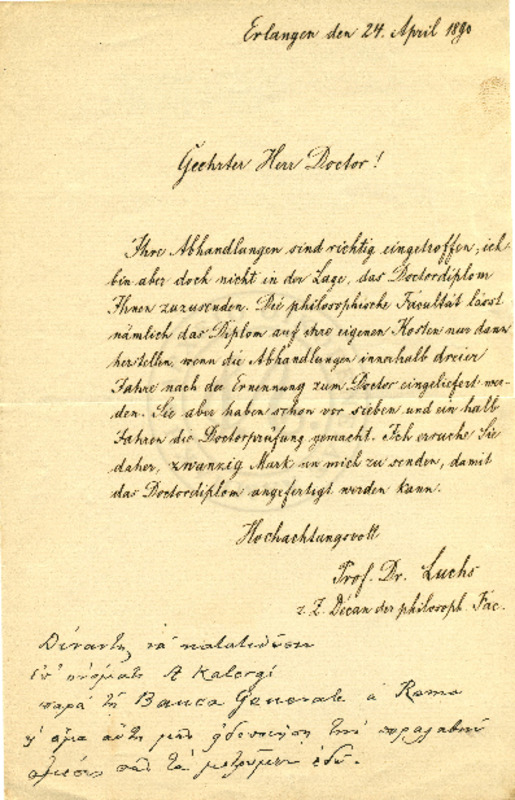 Erlangen den 24. April 1890
Geehrter Herr Doctor!
Ihre Abhandlungen sind richtig eingetroffen, ich
bin aber doch nicht in der Lage, das Doctordiplom
Ihnen zuzusenden. Die philosophische Facultät lässt
nämlich das Diplom auf ihre eigenen Kosten nur dann
herstellen, wenn die Abhandlungen innerhalb dreier
Jahre nach der Ernennung zum Doctor eingeliefert wer-
den. Sie aber haben schon vor sieben und ein halb
Jahren die Doctorprüfung gemacht. Ich ersuche Sie
daher, zwanzig Mark an mich zu senden, damit
das Doctordiplom angefertigt werden kann.
Hochachtungsvoll
Prof. Dr. Luchs
z. Z. Decan der philosoph. Fac.
νὰ
A Kalergi
παρὰ τῇ Banca Generale à Roma